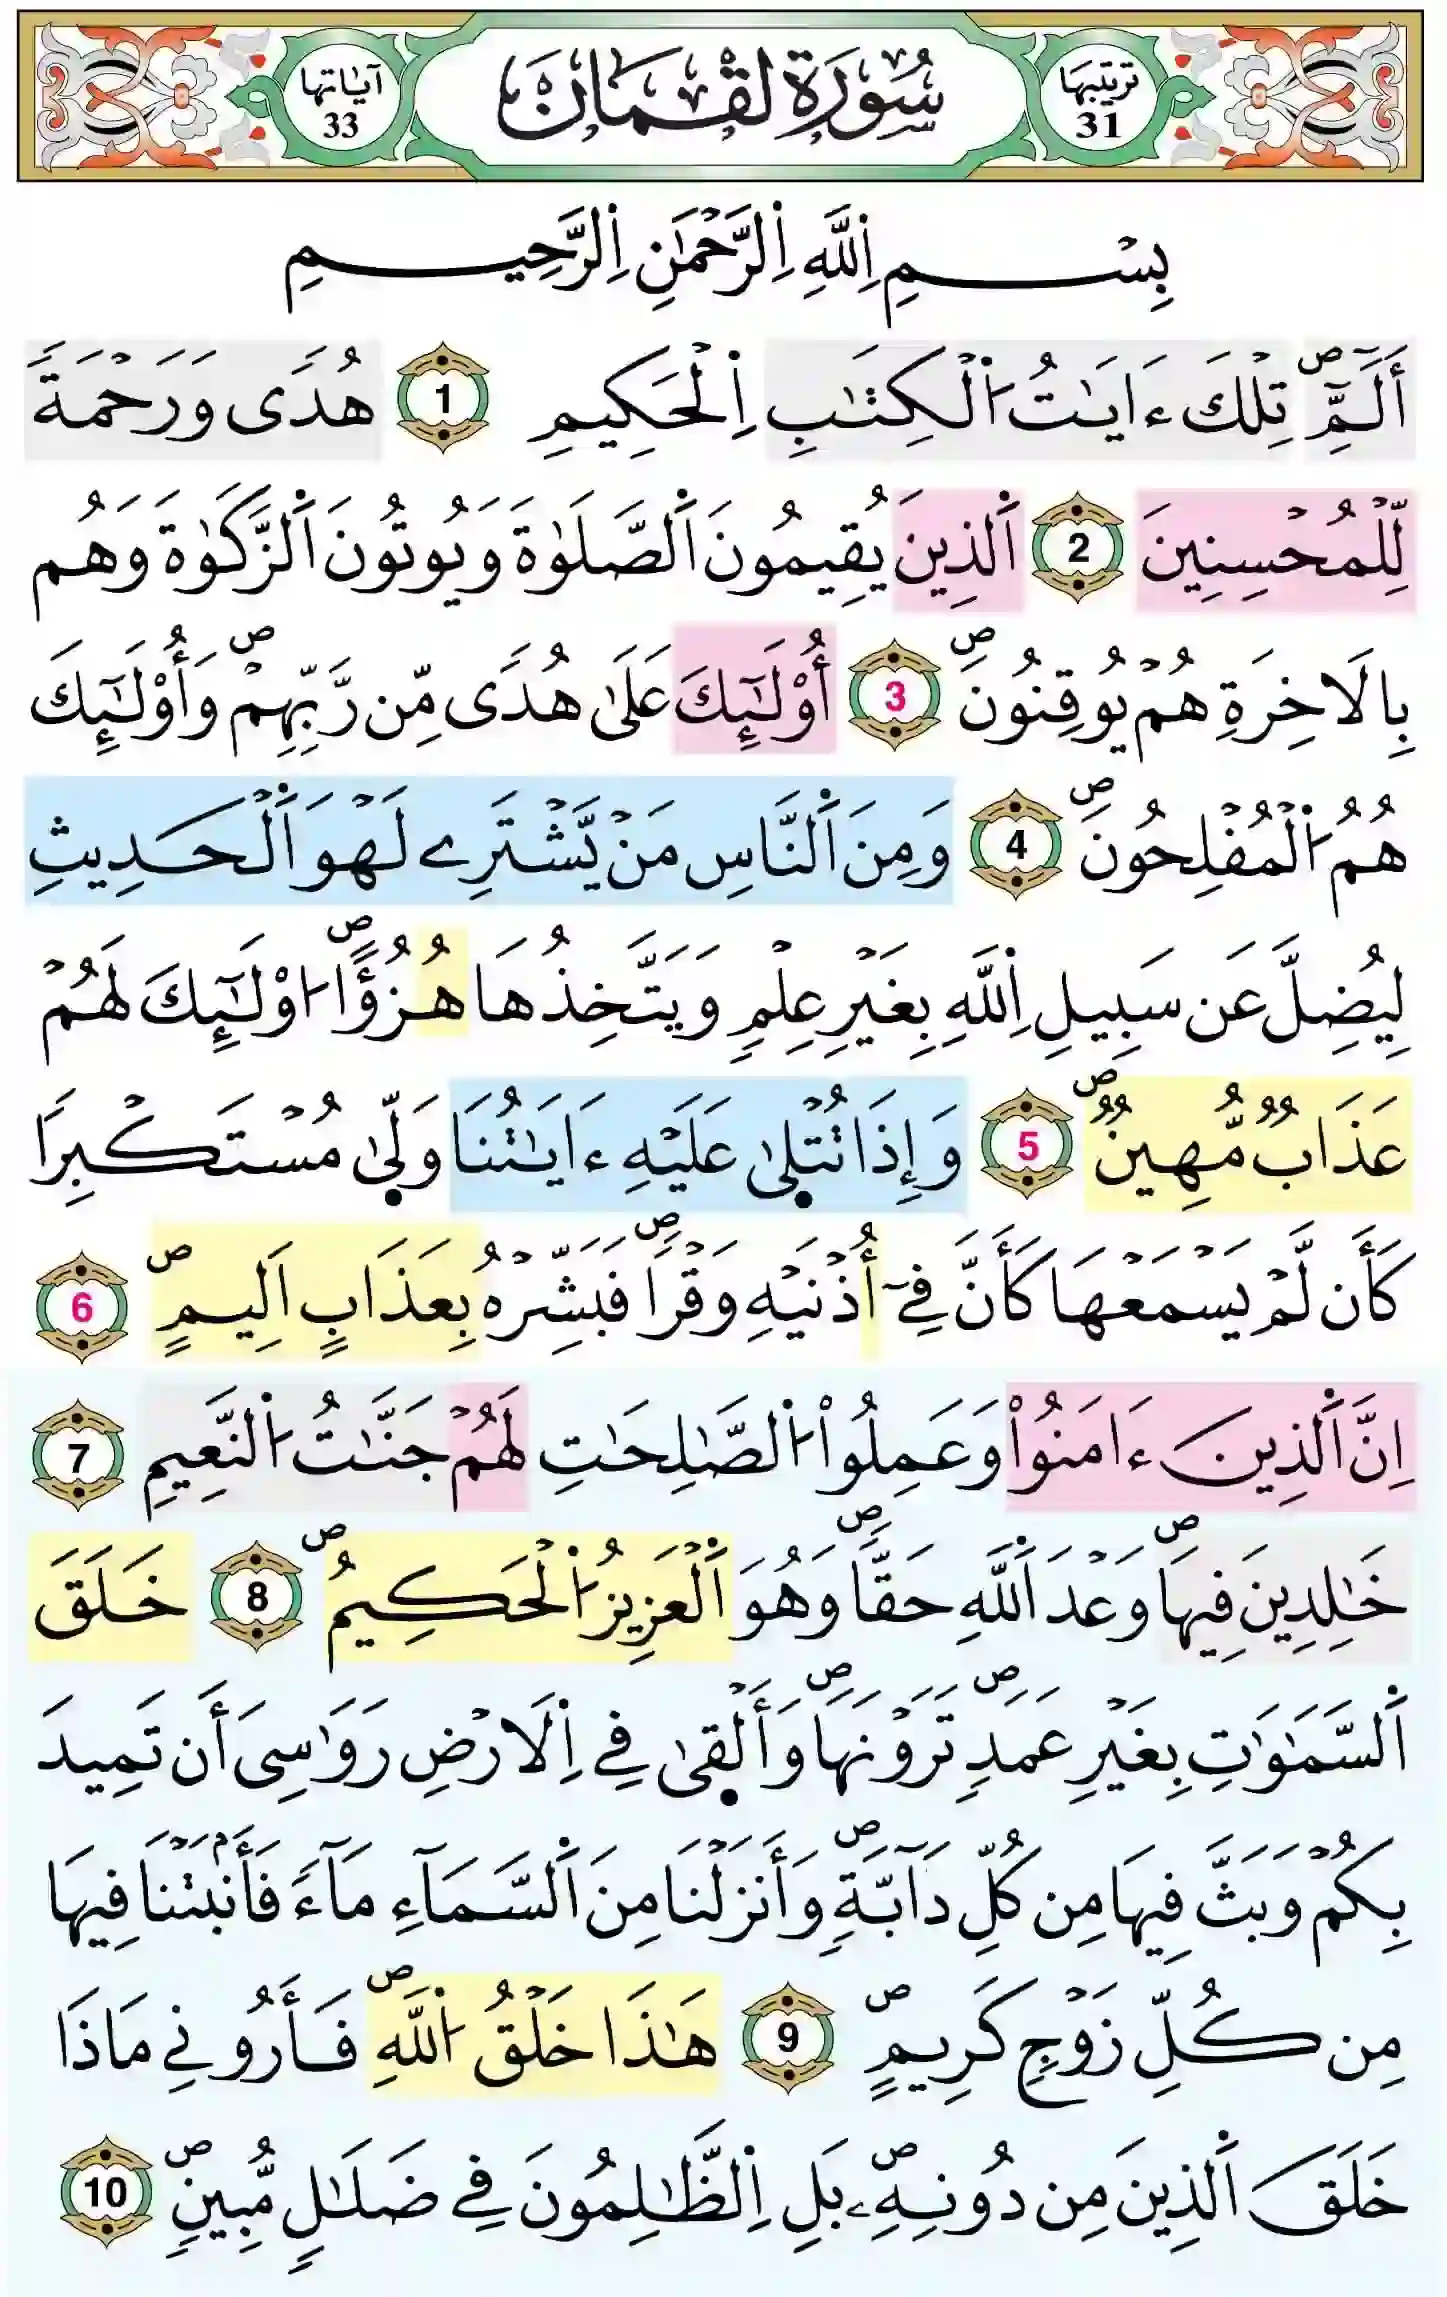 ترتيبها
31
سُورَةُ لُقْمَانَ
آيَاتها
33
بِسْمِ اِ۬للَّهِ اِ۬لرَّحْمَٰنِ اِ۬لرَّحِيمِ
أَلَٓمِّٓۖ تِلْكَ ءَايَٰتُ اُ۬لْكِتَٰبِ اِ۬لْحَكِيمِ 1 هُدٗى وَرَحْمَةٗ
لِّلْمُحْسِنِينَ 2 اَ۬لذِينَ يُقِيمُونَ اَ۬لصَّلَوٰةَ وَيُوتُونَ اَ۬لزَّكَوٰةَ وَهُم
بِالَاخِرَةِ هُمْ يُوقِنُونَۖ 3 أُوْلَٰٓئِكَ عَلَىٰ هُدٗى مِّن رَّبِّهِمْۖ وَأُوْلَٰٓئِكَ
هُمُ اُ۬لْمُفْلِحُونَۖ 4 وَمِنَ اَ۬لنَّاسِ مَنْ يَّشْتَرِے لَهْوَ اَ۬لْحَدِيثِ
لِيُضِلَّ عَن سَبِيلِ اِ۬للَّهِ بِغَيْرِ عِلْمٖ وَيَتَّخِذُهَا هُزُؤاًۖ ا۟وْلَٰٓئِكَ لَهُمْ
عَذَابٞ مُّهِينٞۖ 5 وَإِذَا تُتْلَىٰ عَلَيْهِ ءَايَٰتُنَا وَلَّىٰ مُسْتَكْبِراٗ
كَأَن لَّمْ يَسْمَعْهَا كَأَنَّ فِےٓ أُذْنَيْهِ وَقْراٗۖ فَبَشِّرْهُ بِعَذَابٍ اَلِيمٍۖ 6
اِنَّ اَ۬لذِينَ ءَامَنُواْ وَعَمِلُواْ اُ۬لصَّٰلِحَٰتِ لَهُمْ جَنَّٰتُ اُ۬لنَّعِيمِ 7
خَٰلِدِينَ فِيهَاۖ وَعْدَ اَ۬للَّهِ حَقّاٗۖ وَهُوَ اَ۬لْعَزِيزُ اُ۬لْحَكِيمُۖ 8 خَلَقَ
اَ۬لسَّمَٰوَٰتِ بِغَيْرِ عَمَدٖۖ تَرَوْنَهَاۖ وَأَلْقَىٰ فِے اِ۬لَارْضِ رَوَٰسِىَ أَن تَمِيدَ
بِكُمْ وَبَثَّ فِيهَا مِن كُلِّ دَآبَّةٖۖ وَأَنزَلْنَا مِنَ اَ۬لسَّمَآءِ مَآءٗ فَأَنۢبَتْنَا فِيهَا
مِن كُلِّ زَوْجٖ كَرِيمٍۖ 9 هَٰذَا خَلْقُ اُ۬للَّهِۖ فَأَرُونِے مَاذَا
خَلَقَ اَ۬لذِينَ مِن دُونِهِۦۖ بَلِ اِ۬لظَّٰلِمُونَ فِے ضَلَٰلٖ مُّبِينٖۖ 10